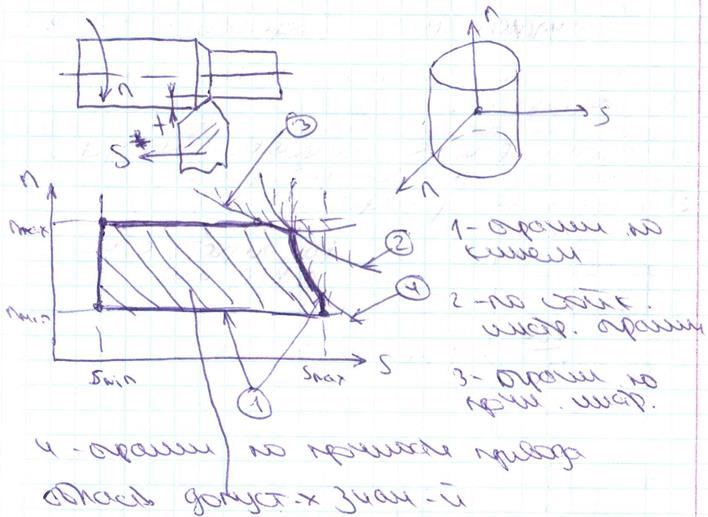 n
t
S
n
S
n
3
n
nmax
2
4
nmin
Smin
Smax
S
1
1 - огранич по
кинем
2 - по стойк.
инстр. огранич
3 - огранич по
прочн. инстр.
4 - огранич по прочности привода
область допуст-х знач-й